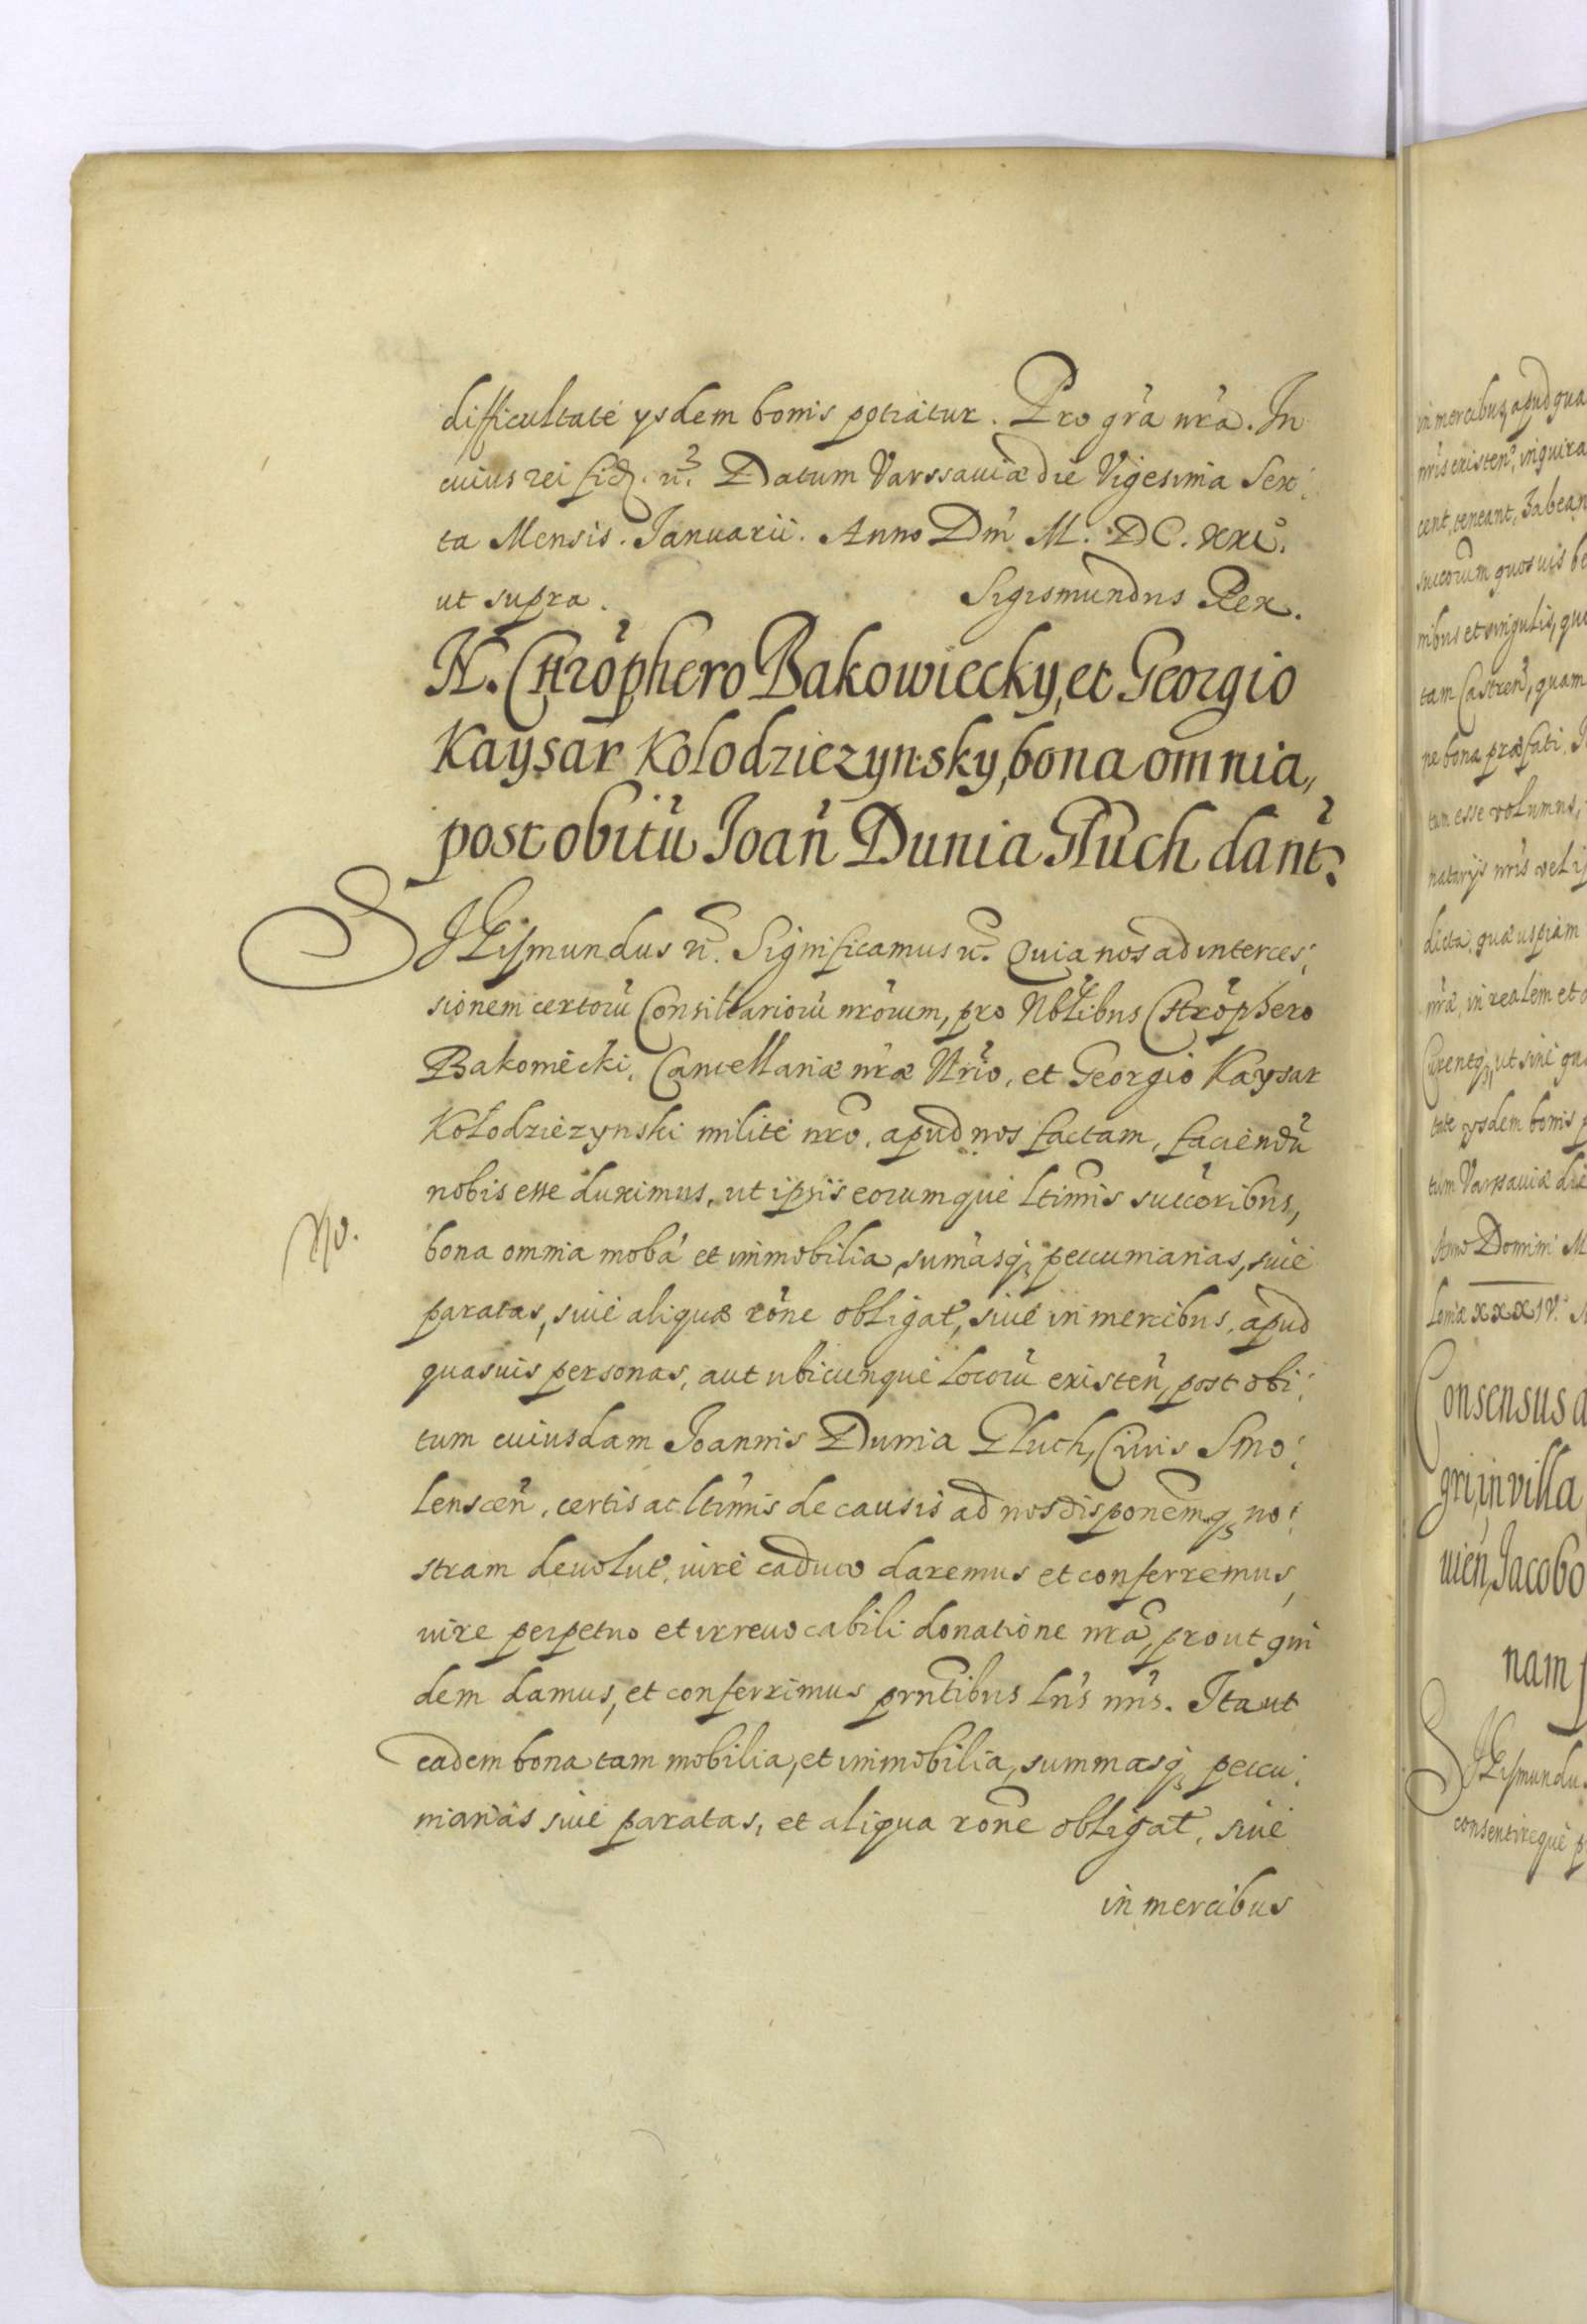 difficultate ysdem bonis potiatur. Pro gr̃a nr̃a. In
cuius rei fid. Datum Varssauiæ die Vigesima Sex:
ta Mensis. Januarii. Anno Dm̃ M. DC. XXI.
ut supra. Sigismundus Rex.
N. Chrõphero Bakowiecky, et Georgio
Kaysar Kolodziezynsky, bona omnia,
post obitũ Joañ Dunia Gluch dant̃.
SIGismundus Significamus Quia nos ad interces:
sionem certorũ Consiliariorũ nr̃orum, pro Nbłibus Chrõphero
Bakowiecki, Cancellariæ nr̃æ Ntrio, et Georgio Kaysar
Kołodzieżynski milite nr̃o, apud nos factam, faciendũ
nobis esse duximus, ut ipsis eorumque ltimis succõribus,
Ño.
bona omnia mobã et immobilia, sum̃asq; peccuniarias, siue
paratas, siue aliqua rõne obligat, siue in mercibus, apud
quasuis personas, aut ubicunque locorũ existeñ, post obi:
tum cuiusdam Joannis Dunia Gluch, Ciuis Smo:
lensceñ, certis ac ltimis de causis ad nos disponemq; no:
stram deuolut, iure caduco daremus et conferremus,
iure perpetuo et irreuocabili donatione nr̃a, prout qui
dem damus, et conferrimus prñtibus lr̃is nr̃is. Ita ut
eadem bona tam mobilia, et immobilia, summasq; peccu:
niarias siue paratas, et aliqua rõne obligat, siue
in mercibus
in mercibus, apud qua
nr̃is existeñ, inquira
cent, teneant, habean
succorum quosuis
nibus et singulis, qu
tam Castreñ, quam
ne bona præfati
tum esse volumus,
natarijs nr̃is vel
dicta, quæ uspiam
nr̃a, in realem et
Curentq; ut sine
tate ysdem bonis
tum Varssauiæ die
Anno Domini M
loniæ XXXIV.
Consensus
gri, in villa
uieñ, Jacobo
nam
SIGismundu
consentireque